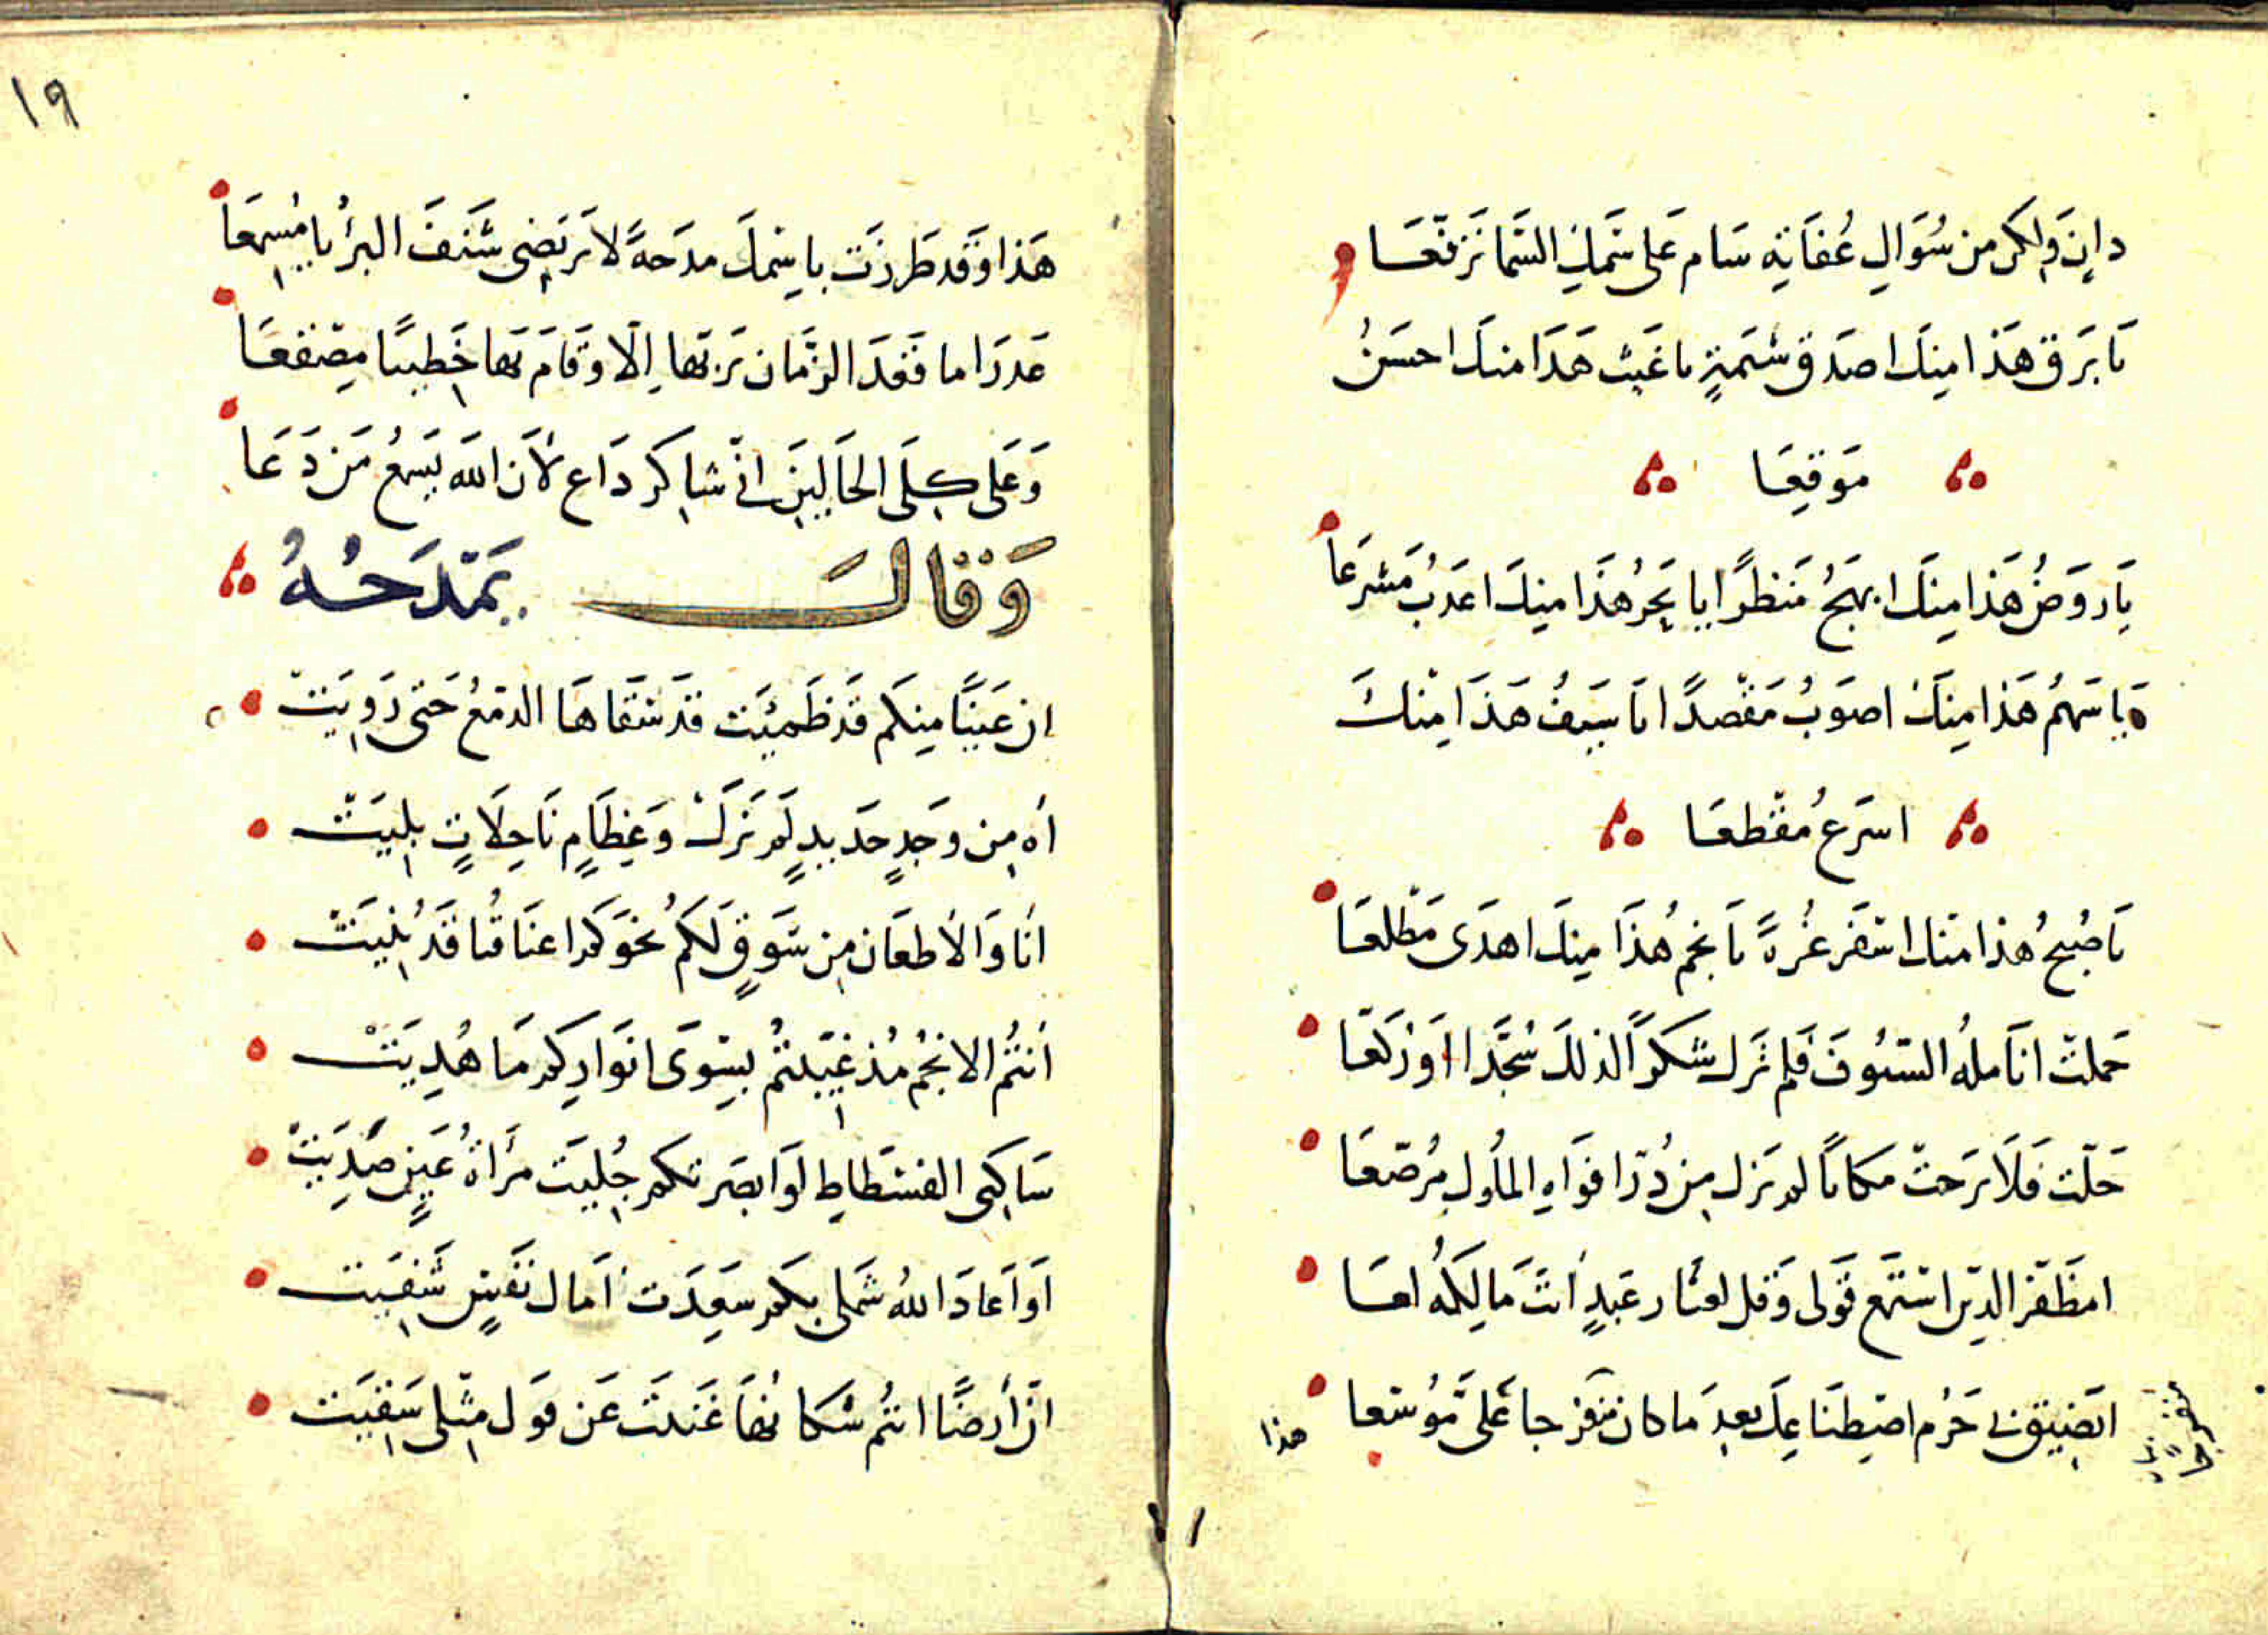 دانٍ ولكن من سُؤالِ عُفاتِه سَام على سَمكِ السَّما تَرفّعَا
يا بَرق هَذا مِنكَ اصدَق شيمَةٍ يا غَيث هَذا منكَ احسَنُ
مَوقِعَا
يَا رَوضُ هَذا مِنكَ ابهجُ مَنظرًا يا بَحرُ هَذا مِنكَ اعذبُ مَشرعا
يا سَهمُ هَذا مِنكَ اصوَبُ مَقصدًا يا سَيفُ هَذَا مِنكَ
اسرَعُ مَقطعَا
يَا صُبحُ هذا منكَ اسفَر غُرةً يَا نجمُ هُذَا مِنكَ اهدَى مَطلعَا
حَملتْ انَاملهُ السّيُوفَ فلم تزل شكرًا لذلكَ سُجَّدا اوَ رُكّعَا
حَلّت فَلَا برَحتْ مكانًا لم يَزل مِن دُرّ افوَاهِ الملُوك مُرصّعَا
امظَفّر الدّين استَمع قَولى وَقل لعثَار عَبدٍ أنتَ مَالِكهُ لعَا
ايَضيق بى حَرَم اصطِنَاعِكَ بعدِ مَا كان منفرجا عَلىَّ مُوَسّعا
هذا
١٩
هَذا وَقَد طَرزَت باسمكَ مدَحةً لا تَرتَضى شَنفَ البرُايا مِسمعَا
عَذرَا ما فَقدَ الزمَّان بَربّها الّا وَقَامَ بهَا خَطيبًا مِصقعَا
وَعَلى كِلَى الحَالَينِ انّى شاكر دَاع لأن الله يَسمعُ مَن دَعَا
وَقالَ يَمْدَحُهُ
ان عَينًا مِنكم قَد ظَمِئَت قَد سَقَاهَا الدمعُ حَتى رَوِيَتْ
اه مِن وجَدٍ حَديدٍ لَم تزلْ وَعِظَامٍ نَاحِلَاتٍ بلِيَتْ
انَا وَالأظعَان مِن شَوقٍ لَكُم نحوَكم اعنَاقُنا قَد لوِيَتْ
أنتُم الانجُم مُذ غيبتُم بسِوَى انوَاركم مَا هُدِيَتْ
سَاكِنى الفسطَاطِ لوَ ابصَرتكم جُلِيَت مرآةُ عَينٍ صَدِيَتْ
اوَ اعَادَ اللهُ شَملى بكم سَعِدَت آمَال نفسٍ شَقِيَت
انّ أرضًا انتُم سُكانُهَا غَنيَت عَن قوَل مِثلى سُقِيَت